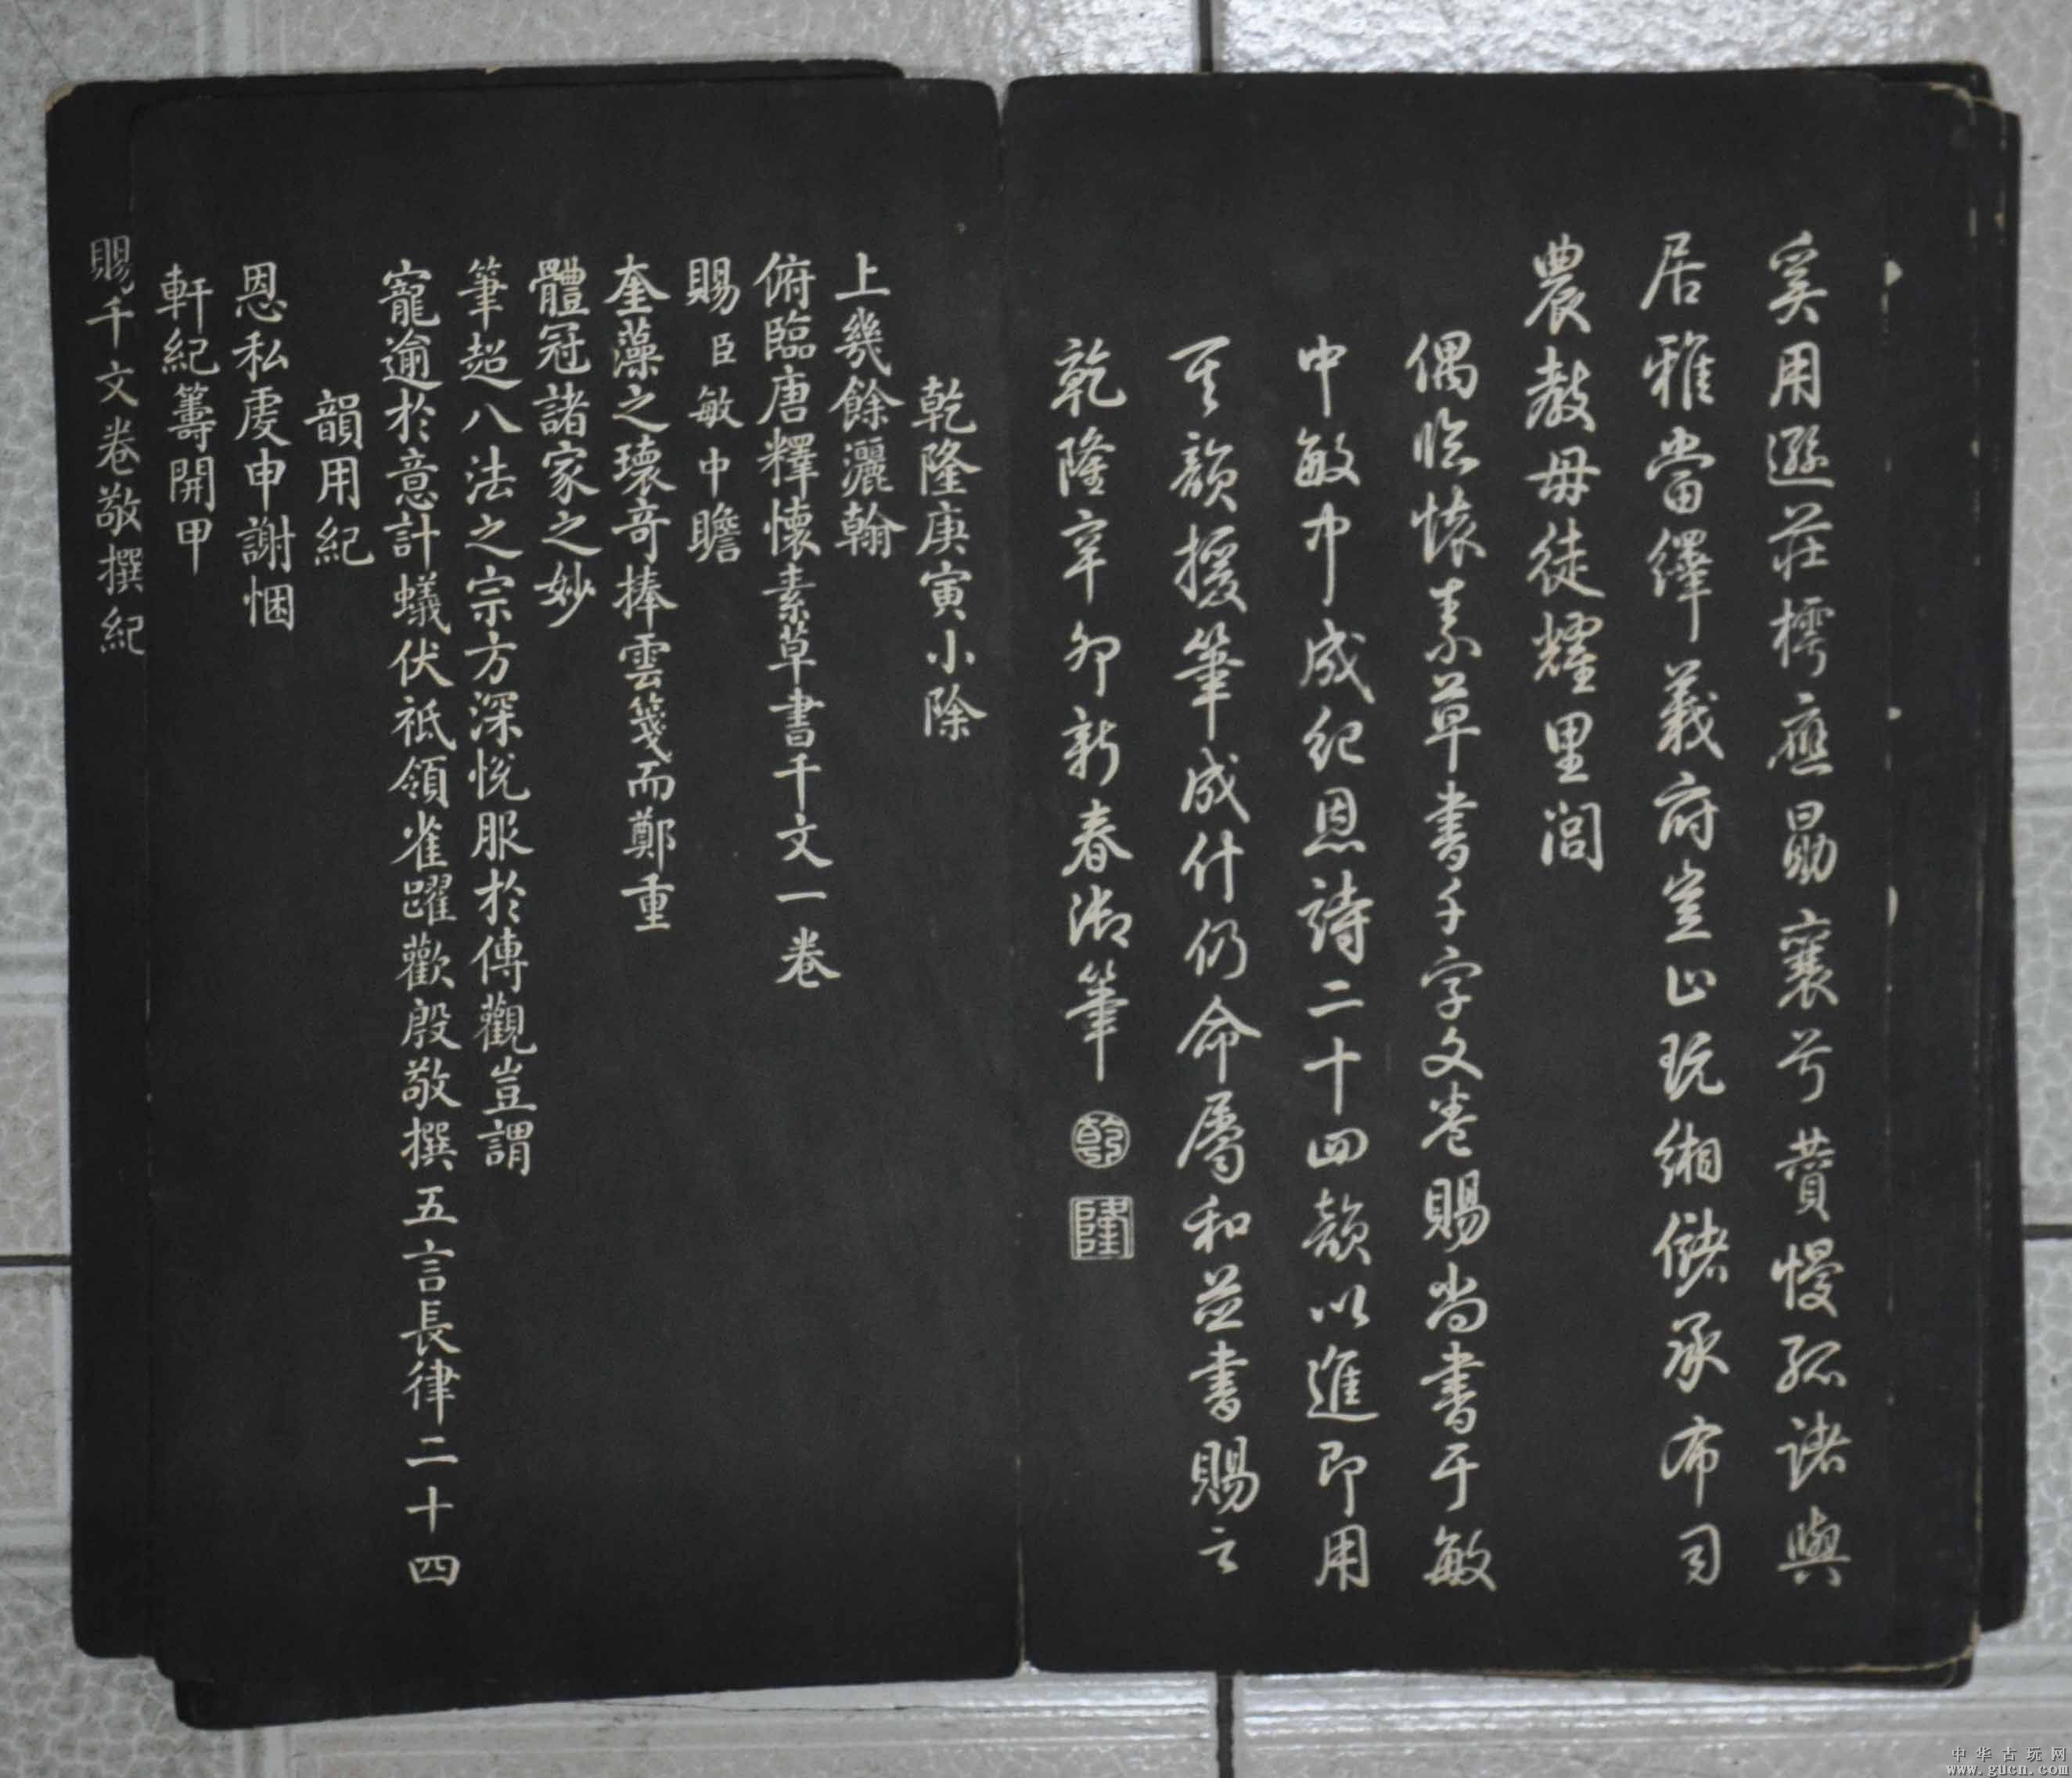 奚用遜莊樗應勗襄兮賁慢孤諸與
居雅當繹義府豈止玩緗儲承布司
農教毋徒耀里閭
偶臨懷素草書千字文卷賜尚書于敏
中敏中成紀恩詩二十四韻以進即用
其韻援筆成什仍命屬和並書賜之
乾隆辛卯新春御筆
乾
隆
乾隆庚寅小除
上幾餘灑翰
俯臨唐釋懷素草書千文一卷
賜臣敏中瞻
奎藻之瓌奇捧雲箋而鄭重
體冠諸家之妙
筆超八法之宗方深悅服於傳觀豈謂
寵逾於意計蟻伏祗領雀躍歡殷敬撰五言長律二十四
韻用紀
恩私虔申謝悃
軒紀籌開甲
賜千文卷敬撰紀
中华古玩网
www.gucn.com